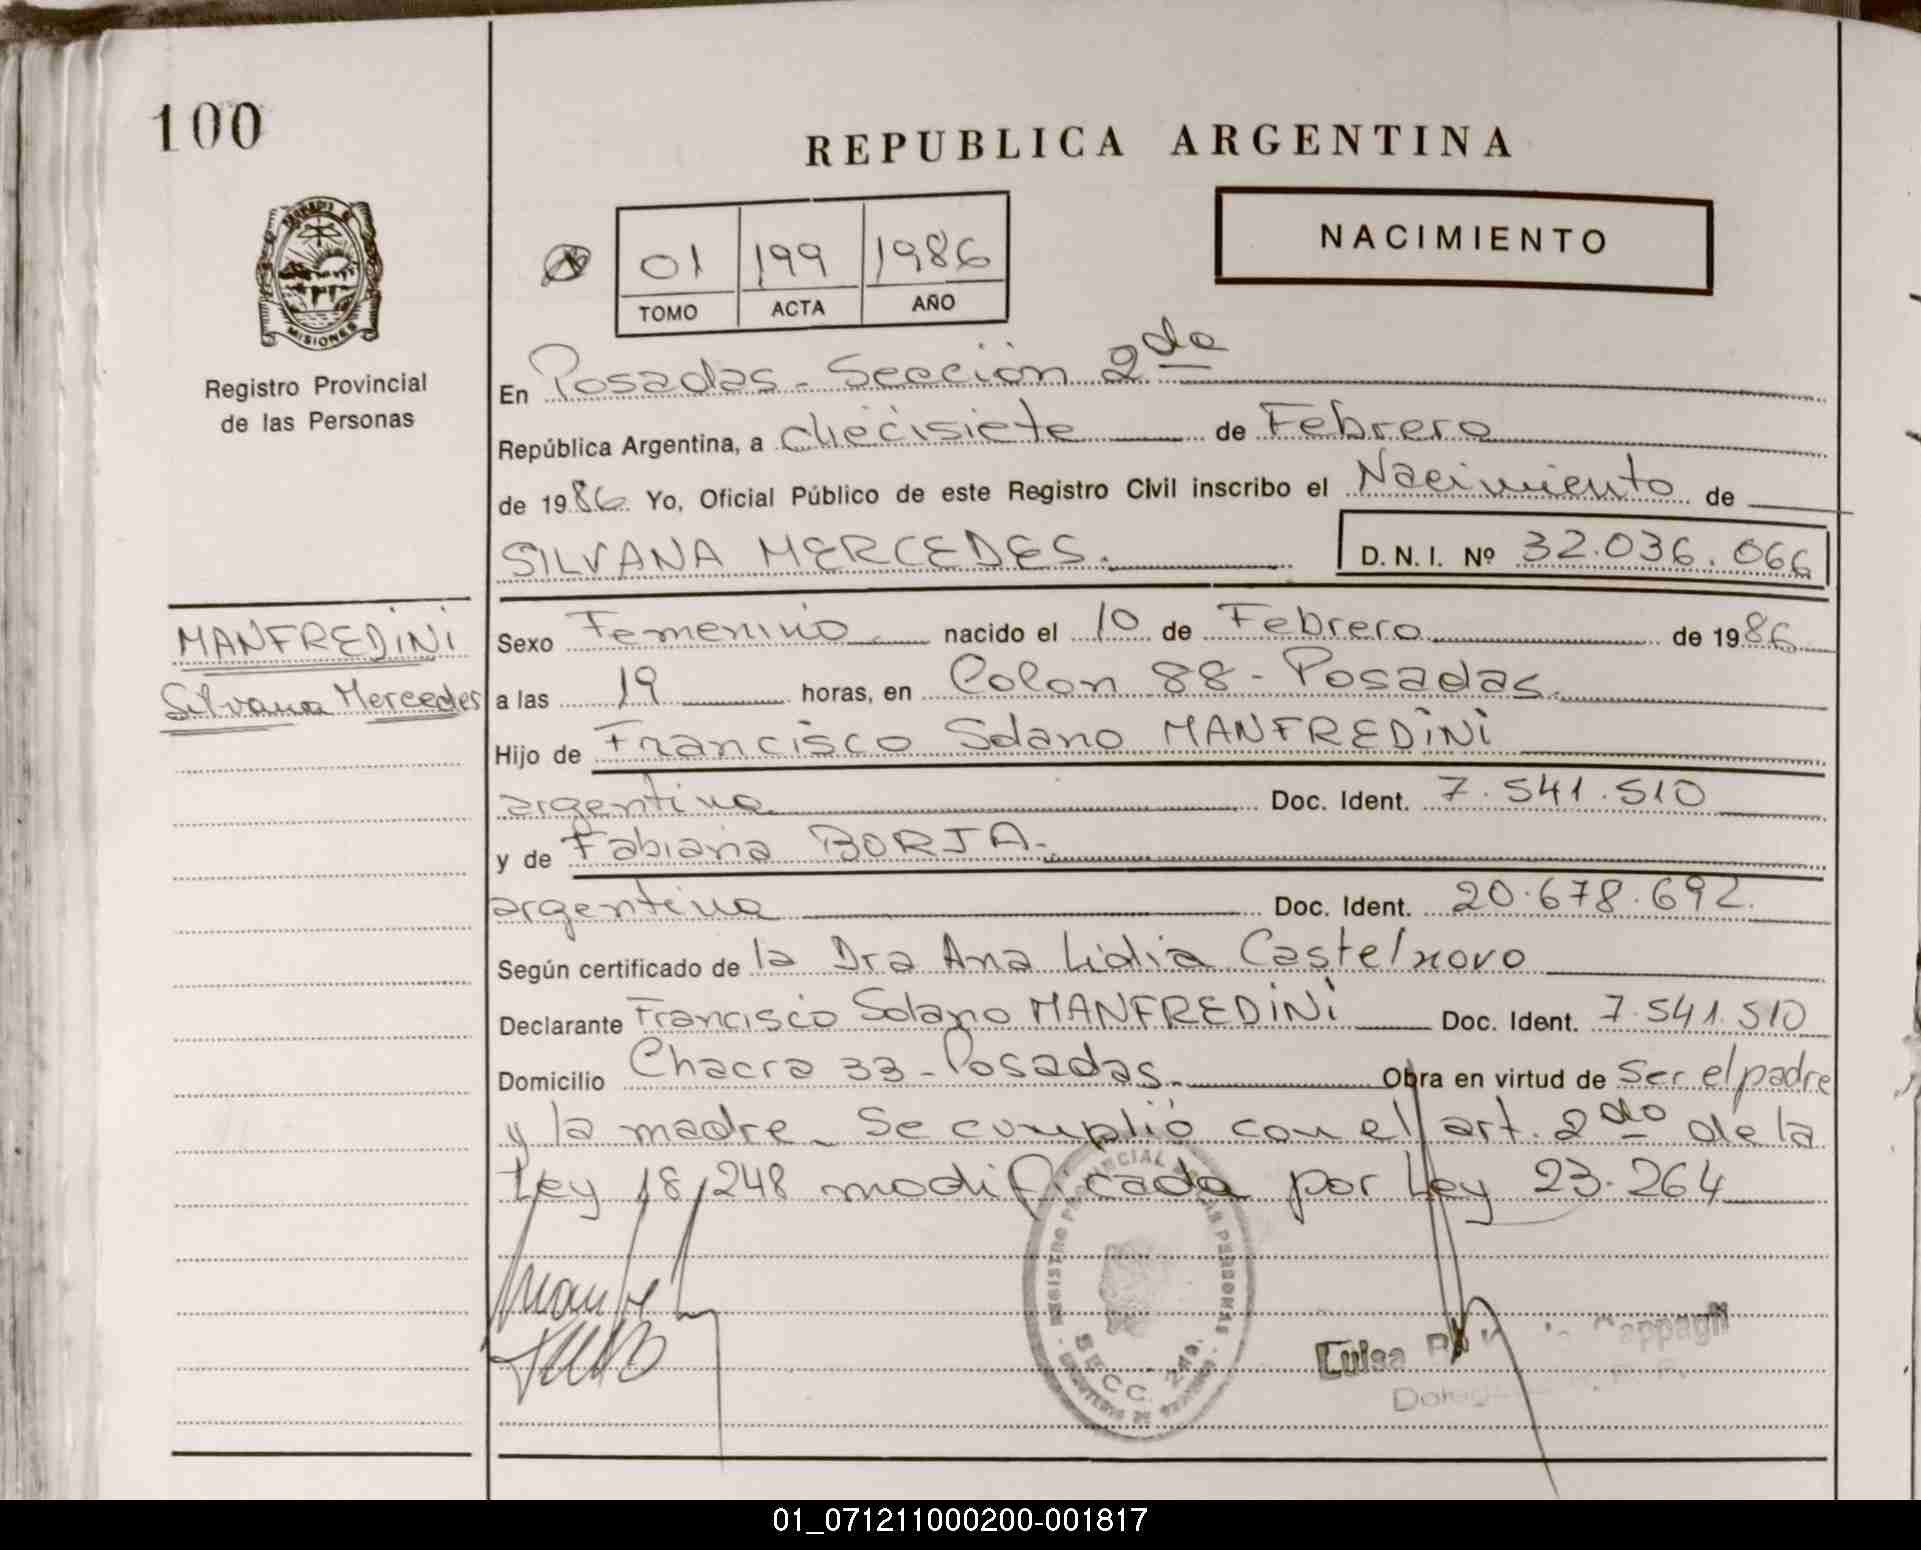 100
REPUBLICA ARGENTINA
NACIMIENTO
01 199 1986
TOMO ACTA AÑO
MISIONES
Registro Provincial
de las Personas
En Posadas - Sección 2da
República Argentina, a diecisiete de Febrero
de 1986 Yo, Oficial Público de este Registro Civil inscribo el Nacimiento de
SILVANA MERCEDES. D. N. I. Nº 32.036.066
MANFREDINI
Silvana Mercedes
Sexo Femenino nacido el 10 de Febrero de 1986
a las 19 horas, en Colon 88 - Posadas.
Hijo de Francisco Solano MANFREDINI
argentino Doc. Ident. 7.541.510
y de Fabiana BORJA.
argentina Doc. Ident. 20.678.692.
Según certificado de la Dra Ana Lidia Castelnovo
Declarante Francisco Solano MANFREDINI Doc. Ident. 7.541.510
Domicilio Chacra 33 - Posadas. Obra en virtud de Ser el padre
y la madre. Se cumplió con el art. 2do de la
Ley 18.248 modificada por Ley 23.264
REGISTRO PROVINCIAL DE LAS PERSONAS
SECC. 2da.
Luisa
01_071211000200-001817